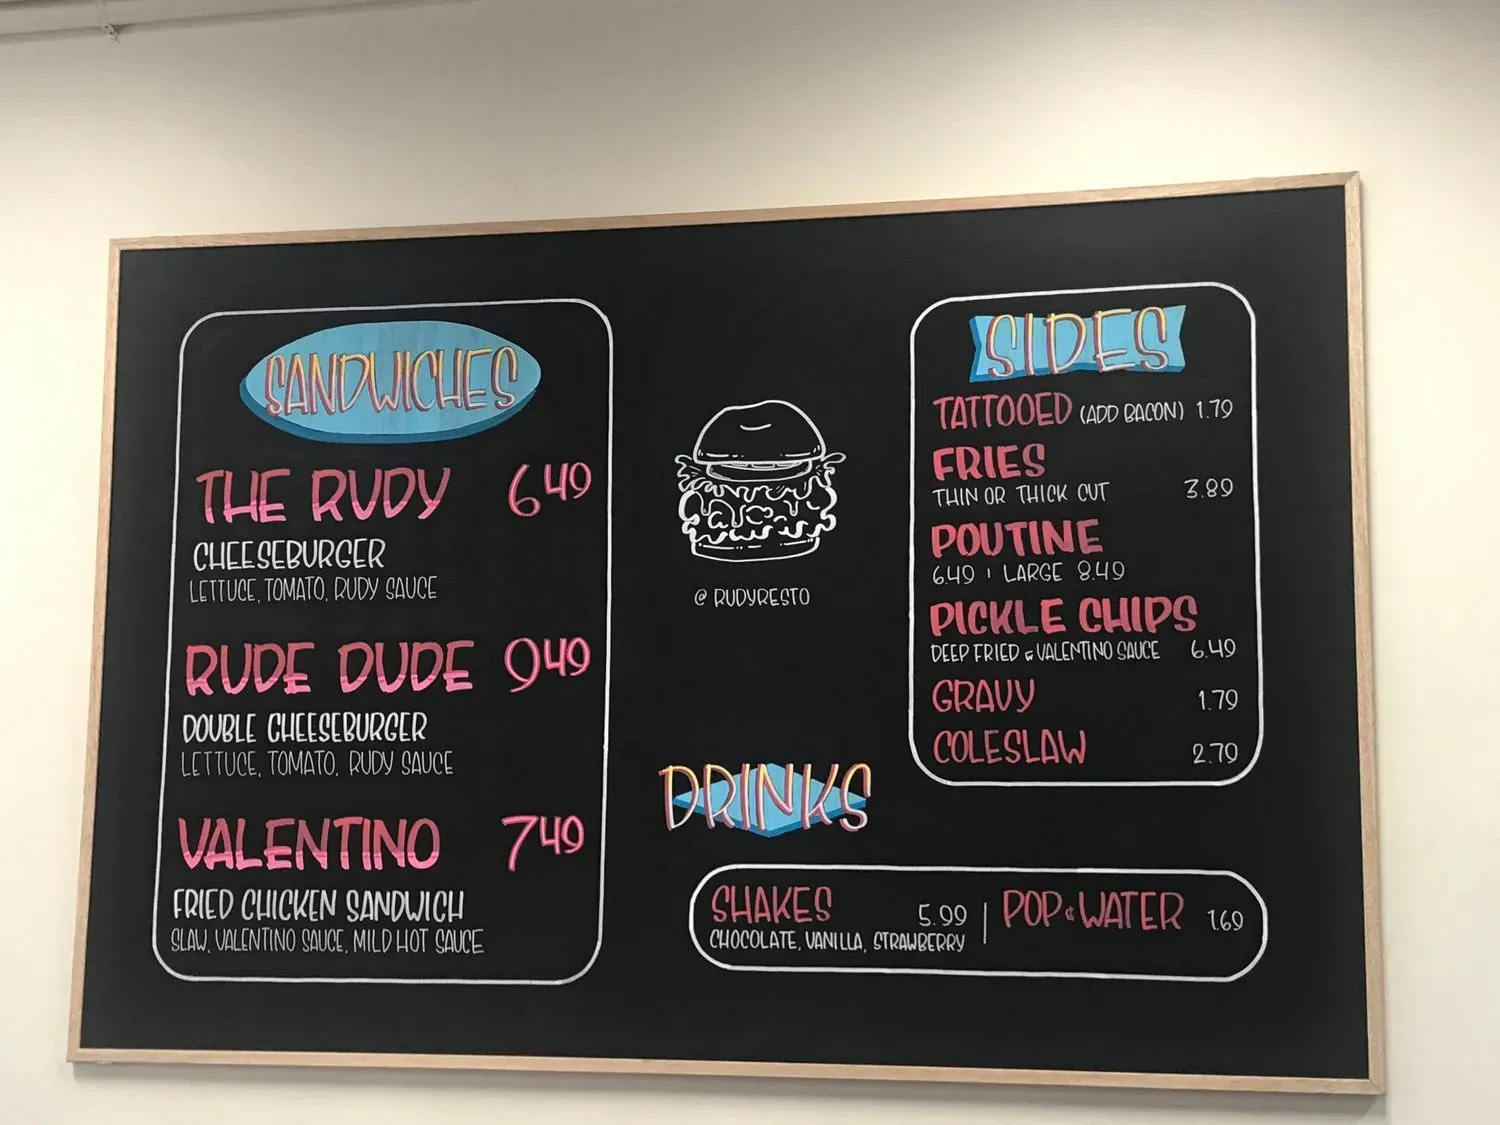 SANDWICHES
THE RUDY 6.49
CHEESEBURGER
LETTUCE, TOMATO, RUDY SAUCE
RUDE DUDE 9.49
DOUBLE CHEESEBURGER
LETTUCE, TOMATO, RUDY SAUCE
VALENTINO 7.49
FRIED CHICKEN SANDWICH
SLAW, VALENTINO SAUCE, MILD HOT SAUCE
@ RUDYRESTO
SIDES
TATTOOED (ADD BACON) 1.79
FRIES
THIN OR THICK CUT 3.89
POUTINE
6.49 | LARGE 8.49
PICKLE CHIPS
DEEP FRIED w VALENTINO SAUCE 6.49
GRAVY 1.79
COLESLAW 2.79
DRINKS
SHAKES 5.99 | POP & WATER 1.69
CHOCOLATE, VANILLA, STRAWBERRY